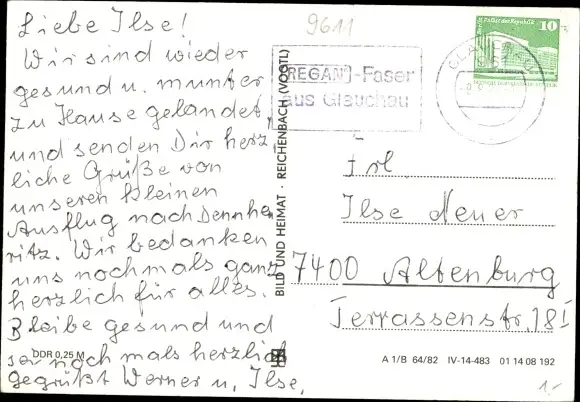 Liebe Ilse!
Wir sind wieder
gesund u. munter
zu Hause gelandet,
und senden Dir herz,
liche Grüße von
unseren kleinen
Ausflug nach Dennhe,
ritz. Wir bedanken
uns nochmals ganz
herzlich für alles.
Bleibe gesund und
sei nochmals herzlich
gegrüßt Werner u. Ilse.
DDR 0,25 M
BILD UND HEIMAT · REICHENBACH (VOGTL)
9611
REGAN -Faser
aus Glauchau
961
10
Frl.
Ilse Neuer
7400 Altenburg
Terrassenstr. 18 I
A 1/B 64/82 IV-14-483 01 14 08 192
1,-